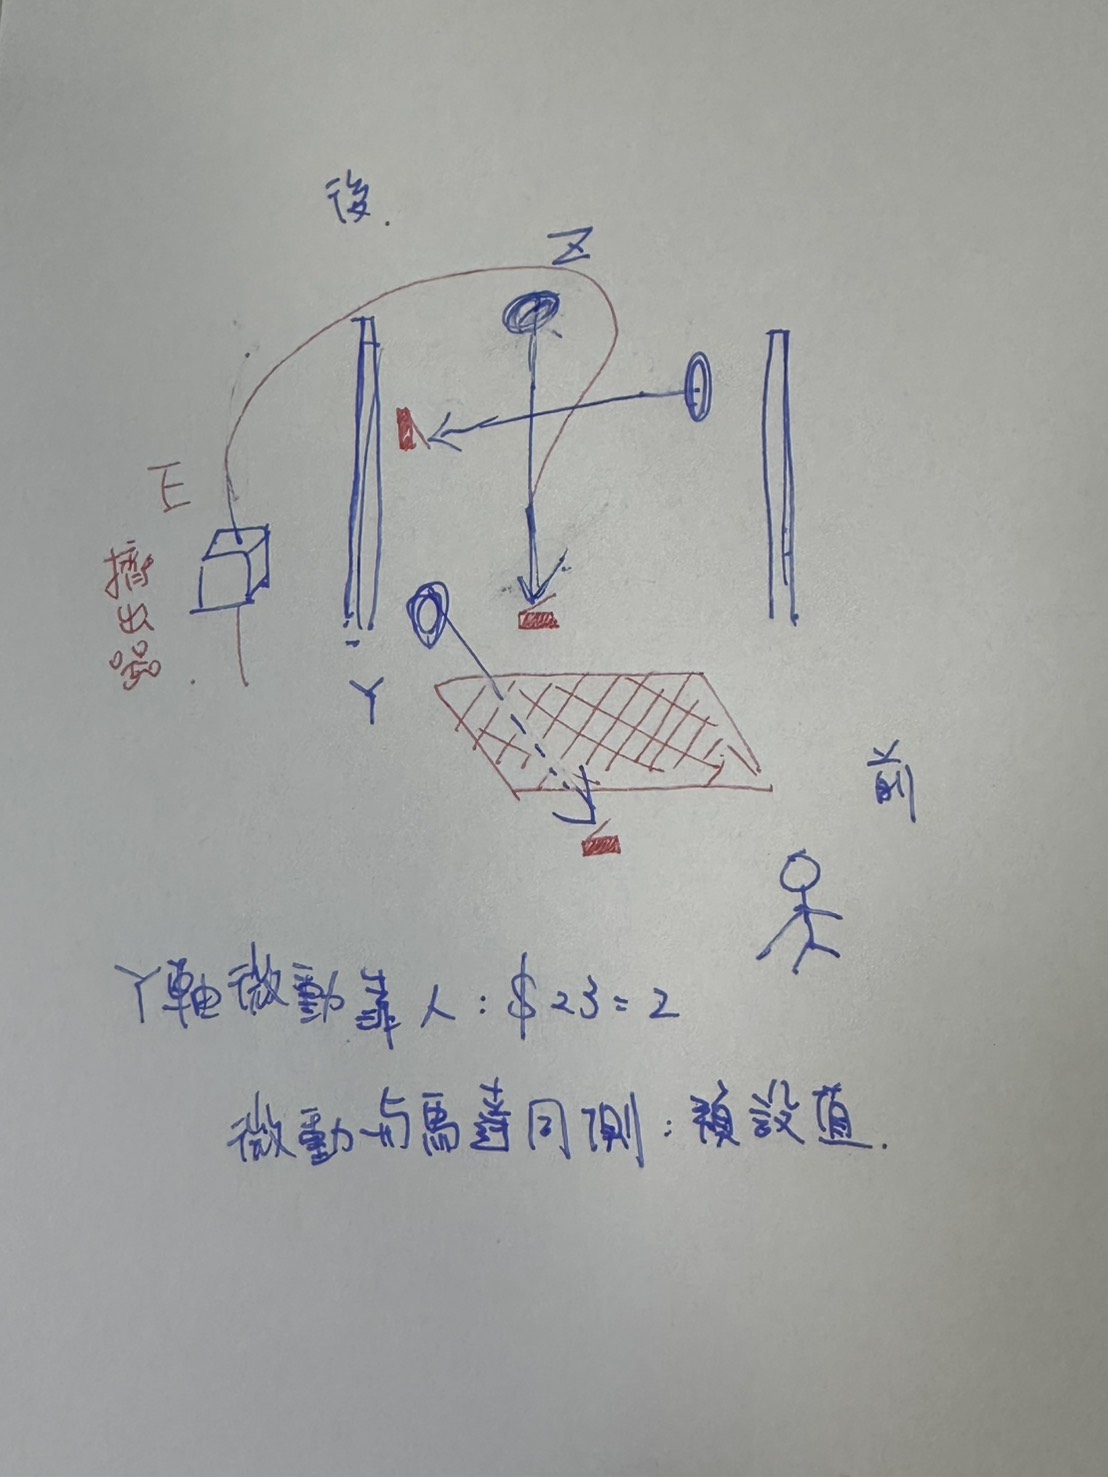 後.
Z
E
擠出器.
Y
前
Y軸微動靠人:$23=2
微動与馬達同側:預設值.